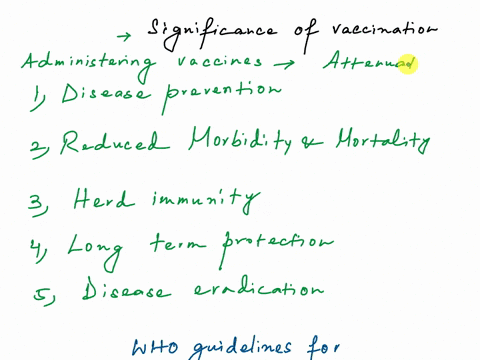 → Significance of vaccination
Administering vaccines → Attenua
1) Disease prevention
2) Reduced Morbidity & Mortality
3) Herd immunity
4) Long term protection
5) Disease eradication
WHO guidelines for